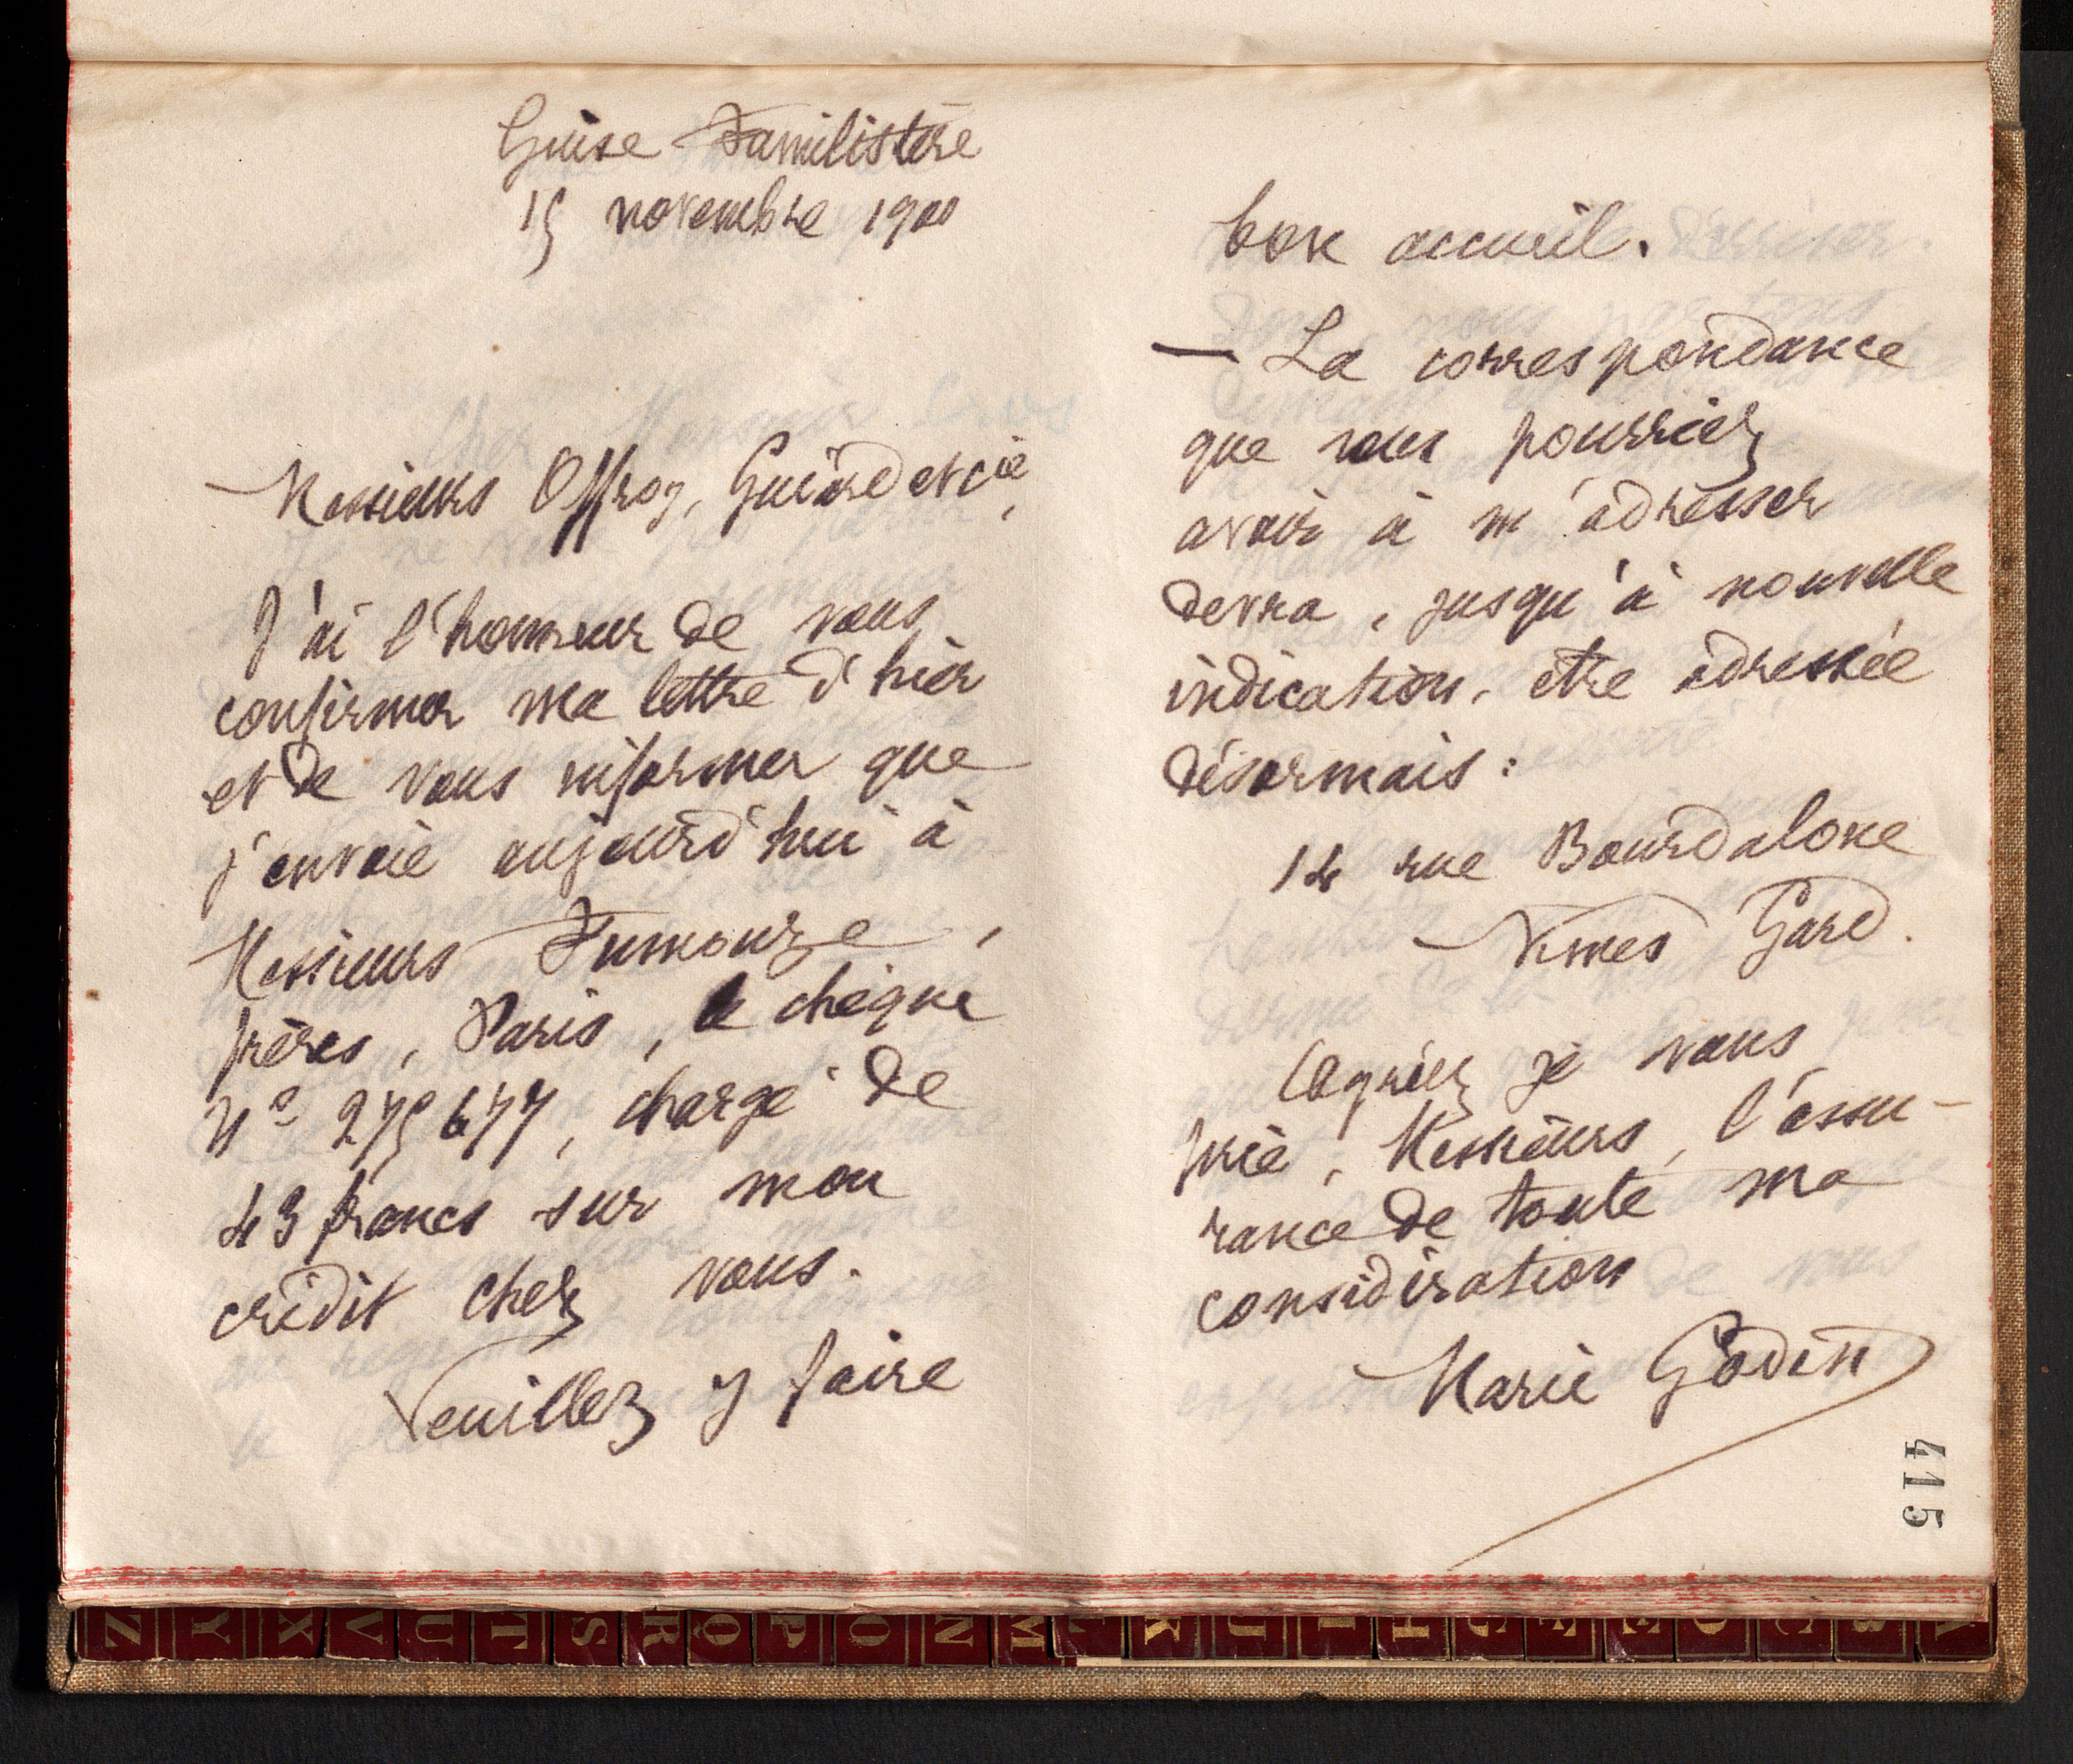 Guise Familistère
15 novembre 1900
Messieurs Offroy, Guiard et cie,
J'ai l'honneur de vous
confirmer ma lettre d'hier
et de vous informer que
j'envoie aujourd'hui à
Messieurs Fumouze,
frères, Paris, le chèque
No 275677, chargé de
43 francs sur mon
crédit chez vous.
Veuillez y faire
bon accueil.
— La correspondance
que vous pourriez
avoir à m'adresser
devra, jusqu'à nouvelle
indication, être adressée
désormais :
14 rue Bourdaloue
Nîmes Gard.
Agréez je vous
prie, Messieurs, l'assu-
rance de toute ma
considération
Marie Godin
415
Z Y X V U T S R Q P O N M L K J I H G F E D C B A